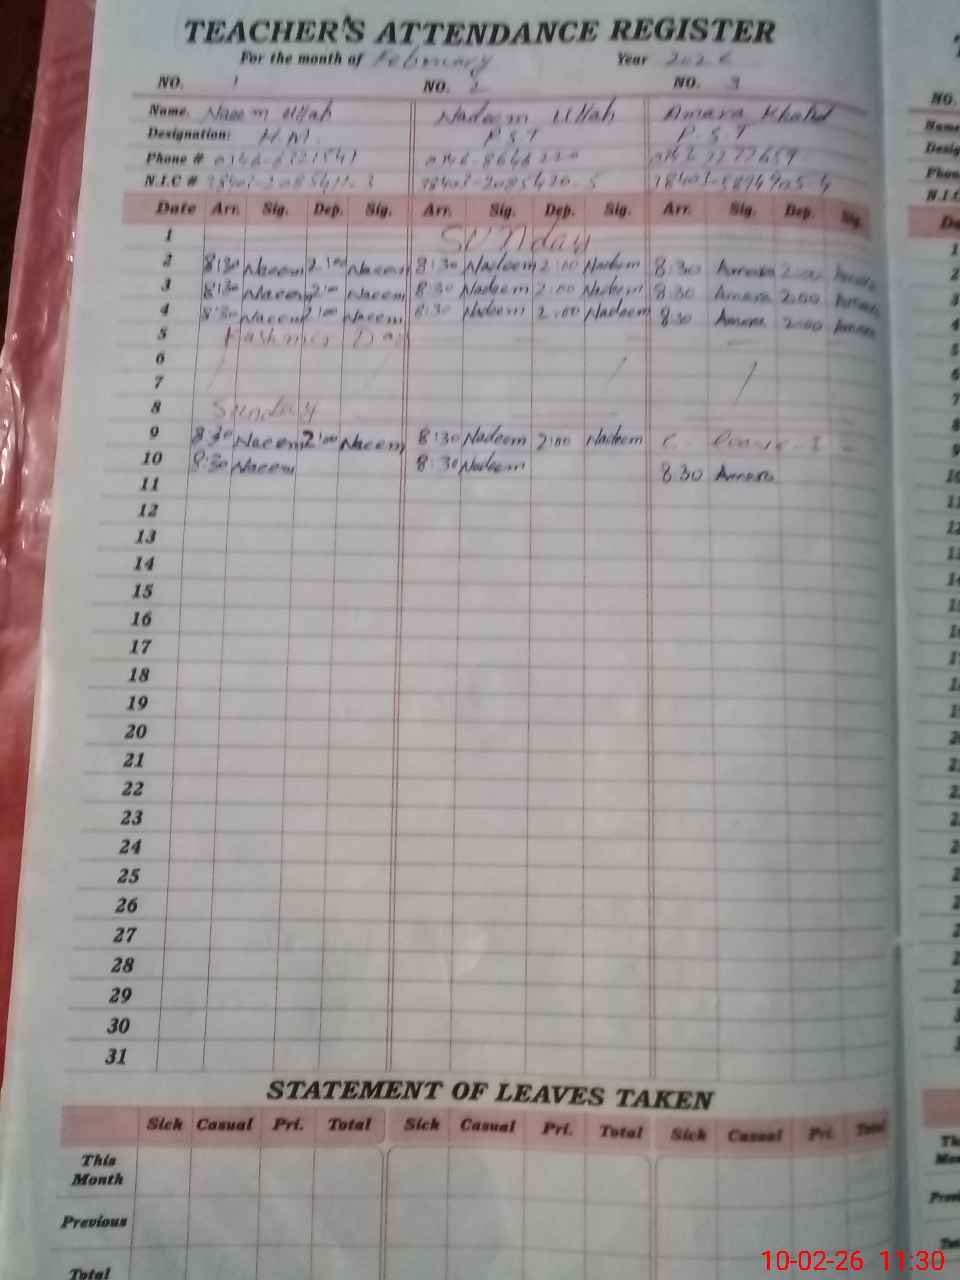 TEACHER'S ATTENDANCE REGISTER
For the month of February Year 2026
NO. 1 NO. 2 NO. 3
Name. Naeem Ullah Nadeem Ullah Amara Khalid
Designation: H.M. P.S.T P.S.T
Phone #
N.I.C #
Date Arr. Sig. Dep. Sig. Arr. Sig. Dep. Sig. Arr. Sig. Dep. Sig.
1 Sunday
2 8:30 Naeem 2:00 Naeem 8:30 Nadeem 2:00 Nadeem 8:30 Amara 2:00 Amara
3 8:30 Naeem 2:00 Naeem 8:30 Nadeem 2:00 Nadeem 8:30 Amara 2:00 Amara
4 8:30 Naeem 2:00 Naeem 8:30 Nadeem 2:00 Nadeem 8:30 Amara 2:00 Amara
5 Kashmir Day
6
7
8 Sunday
9 8:30 Naeem 2:00 Naeem 8:30 Nadeem 2:00 Nadeem
10 8:30 Naeem 8:30 Nadeem 8:30 Amara
11
12
13
14
15
16
17
18
19
20
21
22
23
24
25
26
27
28
29
30
31
STATEMENT OF LEAVES TAKEN
Sick Casual Pri. Total Sick Casual Pri. Total Sick Casual Pri. Total
This
Month
Previous
Total
10-02-26 11:30